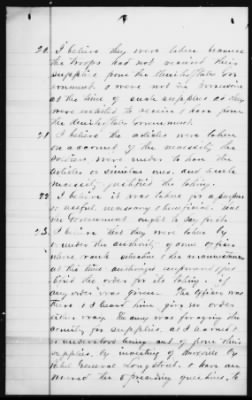 20. I believe they were taken because
the troops had not received their
supplies from the United States Gov-
ernment & were not in possession
at the time of such supplies as they
were entitled to receive & have from
the United States Government.
21. I believe the articles were taken
on account of the necessity the
soldiers were under to have the
articles or similar ones, and such
necessity justified the taking.
22. I believe it was taken for a purpose
so useful, necessary & beneficial, that
the Government ought to pay for it.
23. I believe that they were taken by
& under the authority of some officer
whose rank, situation & the circumstances
at the time authorized empowered & just-
ified the order for its taking. if
any order was given. The officer was
there & I heard him give no order
either way. The army was foraging the
county for supplies, as I learned &
so understood being out of from their
supplies, by investing of Knoxville by
Rebel General Longstreet. I have an-
swered the 6 preceding questions, to